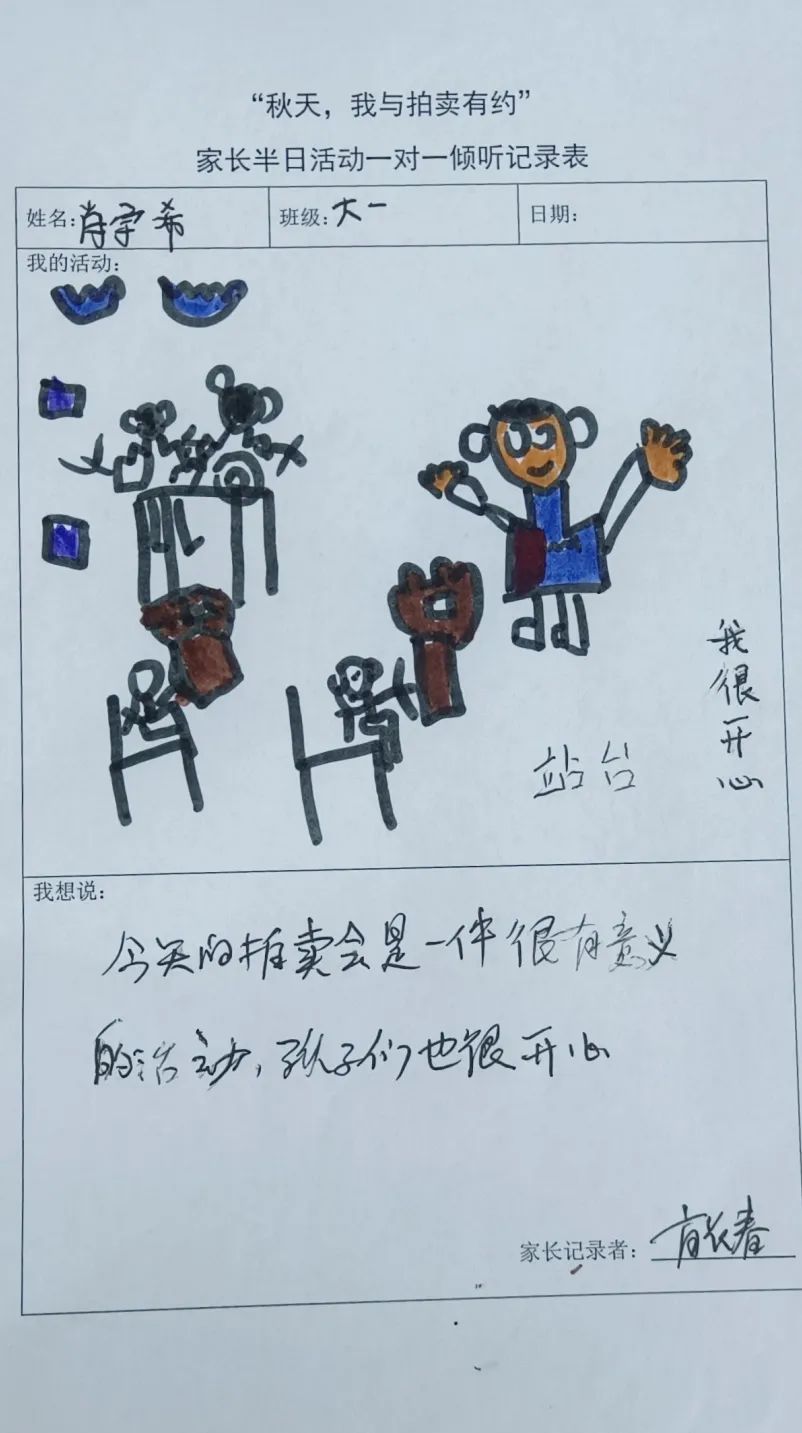 “秋天，我与拍卖有约”
家长半日活动一对一倾听记录表
姓名：肖宇希 班级：大一 日期：
我的活动：
我很开心
站台
我想说：
今天的拍卖会是一件很有意义
的活动，孩子们也很开心
家长记录者：肖长春